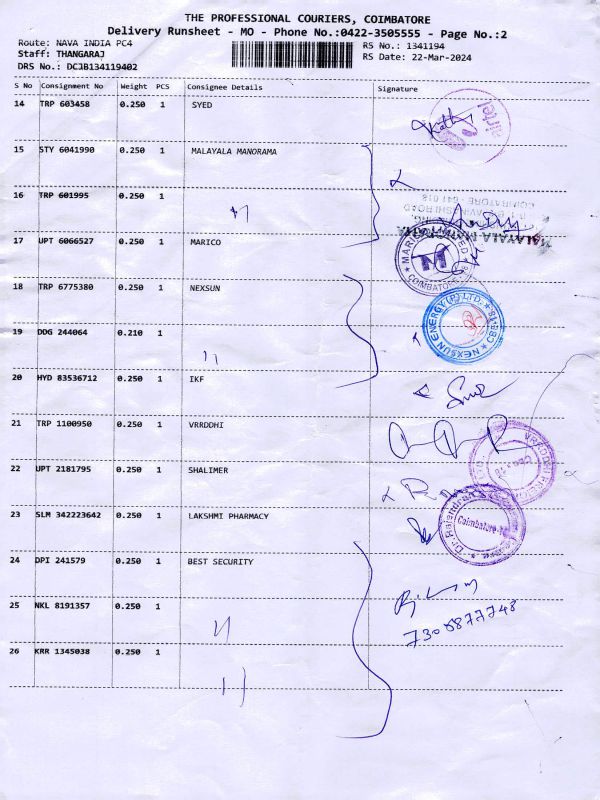 THE PROFESSIONAL COURIERS, COIMBATORE
Delivery Runsheet - MO - Phone No.:0422-3505555 - Page No.:2
Route: NAVA INDIA PC4 RS No.: 1341194
Staff: THANGARAJ RS Date: 22-Mar-2024
DRS No.: DCJB134119402
S No Consignment No Weight PCS Consignee Details Signature
14 TRP 603458 0.250 1 SYED
airtel
15 STY 6041990 0.250 1 MALAYALA MANORAMA
16 TRP 601995 0.250 1 "
COIMBATORE - 641 018
MALAYALA MANORAMA
17 UPT 6066527 0.250 1 MARICO
M
COIMBATORE
18 TRP 6775380 0.250 1 NEXSUN
NEXSUN ENERGY (P) LTD.
19 DDG 244064 0.210 1 "
20 HYD 83536712 0.250 1 IKF
21 TRP 1100950 0.250 1 VRRDDHI
22 UPT 2181795 0.250 1 SHALIMER
23 SLM 342223642 0.250 1 LAKSHMI PHARMACY
Dr. Rajendra
Coimbatore
24 DPI 241579 0.250 1 BEST SECURITY
25 NKL 8191357 0.250 1 "
7305877748
26 KRR 1345038 0.250 1 "